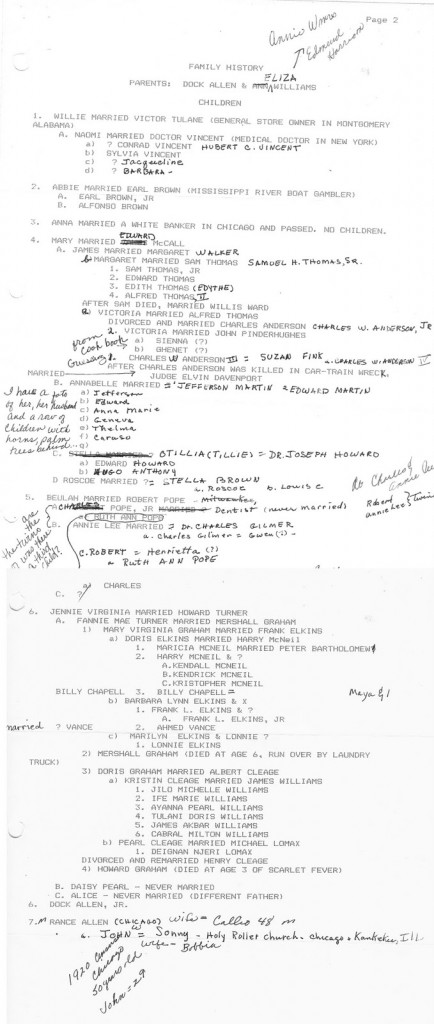 Annie Wms
Page 2
↑ Edmund Harrison
FAMILY HISTORY
ELIZA
PARENTS: DOCK ALLEN & WILLIAMS
CHILDREN
1. WILLIE MARRIED VICTOR TULANE (GENERAL STORE OWNER IN MONTGOMERY
ALABAMA)
A. NAOMI MARRIED DOCTOR VINCENT (MEDICAL DOCTOR IN NEW YORK)
a) ? CONRAD VINCENT HUBERT C. VINCENT
b) SYLVIA VINCENT
c) ? Jacqueline
d) ? BARBARA -
2. ABBIE MARRIED EARL BROWN (MISSISSIPPI RIVER BOAT GAMBLER)
A. EARL BROWN, JR
B. ALFONSO BROWN
3. ANNA MARRIED A WHITE BANKER IN CHICAGO AND PASSED. NO CHILDREN.
4. MARY MARRIED EDWARD McCALL
A. JAMES MARRIED MARGARET WALKER
MARGARET MARRIED SAM THOMAS SAMUEL H. THOMAS, SR.
1. SAM THOMAS, JR
2. EDWARD THOMAS
3. EDITH THOMAS (EDYTHE)
4. ALFRED THOMAS, II
AFTER SAM DIED, MARRIED WILLIS WARD
VICTORIA MARRIED ALFRED THOMAS
DIVORCED AND MARRIED CHARLES ANDERSON CHARLES W. ANDERSON, JR
2. VICTORIA MARRIED JOHN PINDERHUGHES
from cook book
a) SIENNA (?)
b) GHENET (?)
CHARLES W ANDERSON III = SUZAN FINK - CHARLES W. ANDERSON IV
AFTER CHARLES ANDERSON WAS KILLED IN CAR-TRAIN WRECK,
MARRIED JUDGE ELVIN DAVENPORT
B. ANNABELLE MARRIED = JEFFERSON MARTIN = EDWARD MARTIN
I have a foto of her, her husband and a row of children with horns, palm trees behind...
a) Jefferson
b) Edward
c) Anna Marie
d) Geneva
e) Thelma
f) Caruso
g)
C. OTILLIA (TILLIE) = DR. JOSEPH HOWARD
a) EDWARD HOWARD
b) HUGO ANTHONY
D ROSCOE MARRIED ?= STELLA BROWN
a. Roscoe b. Louis C
5. BEULAH MARRIED ROBERT POPE - Milwaukee,
A. CHARLES POPE, JR Dentist (never married)
RUTH ANN POPE
B. ANNIE LEE MARRIED = DR. CHARLES GILMER
a. Charles Gilmer = Gwen (?) -
C. ROBERT = Henrietta (?)
a RUTH ANN POPE
Robert & annie Lee } twins
g) CHARLES
C. ?
6. JENNIE VIRGINIA MARRIED HOWARD TURNER
A. FANNIE MAE TURNER MARRIED MERSHALL GRAHAM
1) MARY VIRGINIA GRAHAM MARRIED FRANK ELKINS
a) DORIS ELKINS MARRIED HARRY McNeil
1. MARICIA MCNEIL MARRIED PETER BARTHOLOMEW
2. HARRY MCNEIL & ?
A.KENDALL MCNEIL
B.KENDRICK MCNEIL
C.KRISTOPHER MCNEIL
BILLY CHAPELL 3. BILLY CHAPELL=
Maya &
b) BARBARA LYNN ELKINS & X
1. FRANK L. ELKINS & ?
A. FRANK L. ELKINS, JR
married ? VANCE 2. AHMED VANCE
c) MARILYN ELKINS & LONNIE ?
1. LONNIE ELKINS
2) MERSHALL GRAHAM (DIED AT AGE 6, RUN OVER BY LAUNDRY
TRUCK)
3) DORIS GRAHAM MARRIED ALBERT CLEAGE
a) KRISTIN CLEAGE MARRIED JAMES WILLIAMS
1. JILO MICHELLE WILLIAMS
2. IFE MARIE WILLIAMS
3. AYANNA PEARL WILLIAMS
4. TULANI DORIS WILLIAMS
5. JAMES AKBAR WILLIAMS
6. CABRAL MILTON WILLIAMS
b) PEARL CLEAGE MARRIED MICHAEL LOMAX
1. DEIGNAN NJERI LOMAX
DIVORCED AND REMARRIED HENRY CLEAGE
4) HOWARD GRAHAM (DIED AT AGE 3 OF SCARLET FEVER)
B. DAISY PEARL - NEVER MARRIED
C. ALICE - NEVER MARRIED (DIFFERENT FATHER)
6. DOCK ALLEN, JR.
7. RANCE ALLEN (CHICAGO) wife = Callie 48
a. JOHN W = Sonny - Holy Roller Church - Chicago & Kankakee, Ill
wife - Bobbia
1920 census
Chicago
50 years old
John = 29